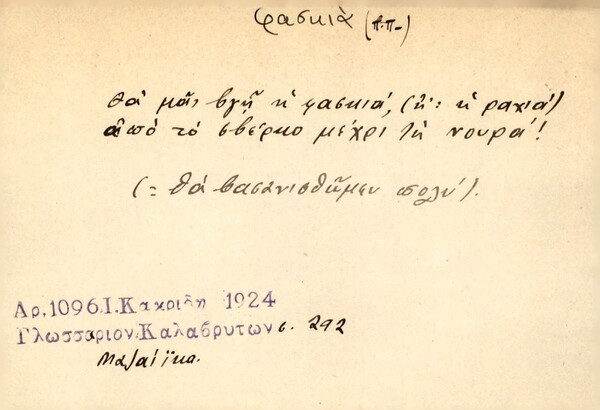 φασκιὰ (π.π-)
θά μᾶς βγῇ ἡ φασκιά, (ἤ: ἡ ραχιά)
ἀπό τό σβέρκο μέχρι τή νουρά!
(= θά βασανισθῶμεν πολύ).
Αρ.1096,Ι.Κακριδη 1924
Γλωσσαριον Καλαβρυτων σ. 292
Μαζαίϊκα.